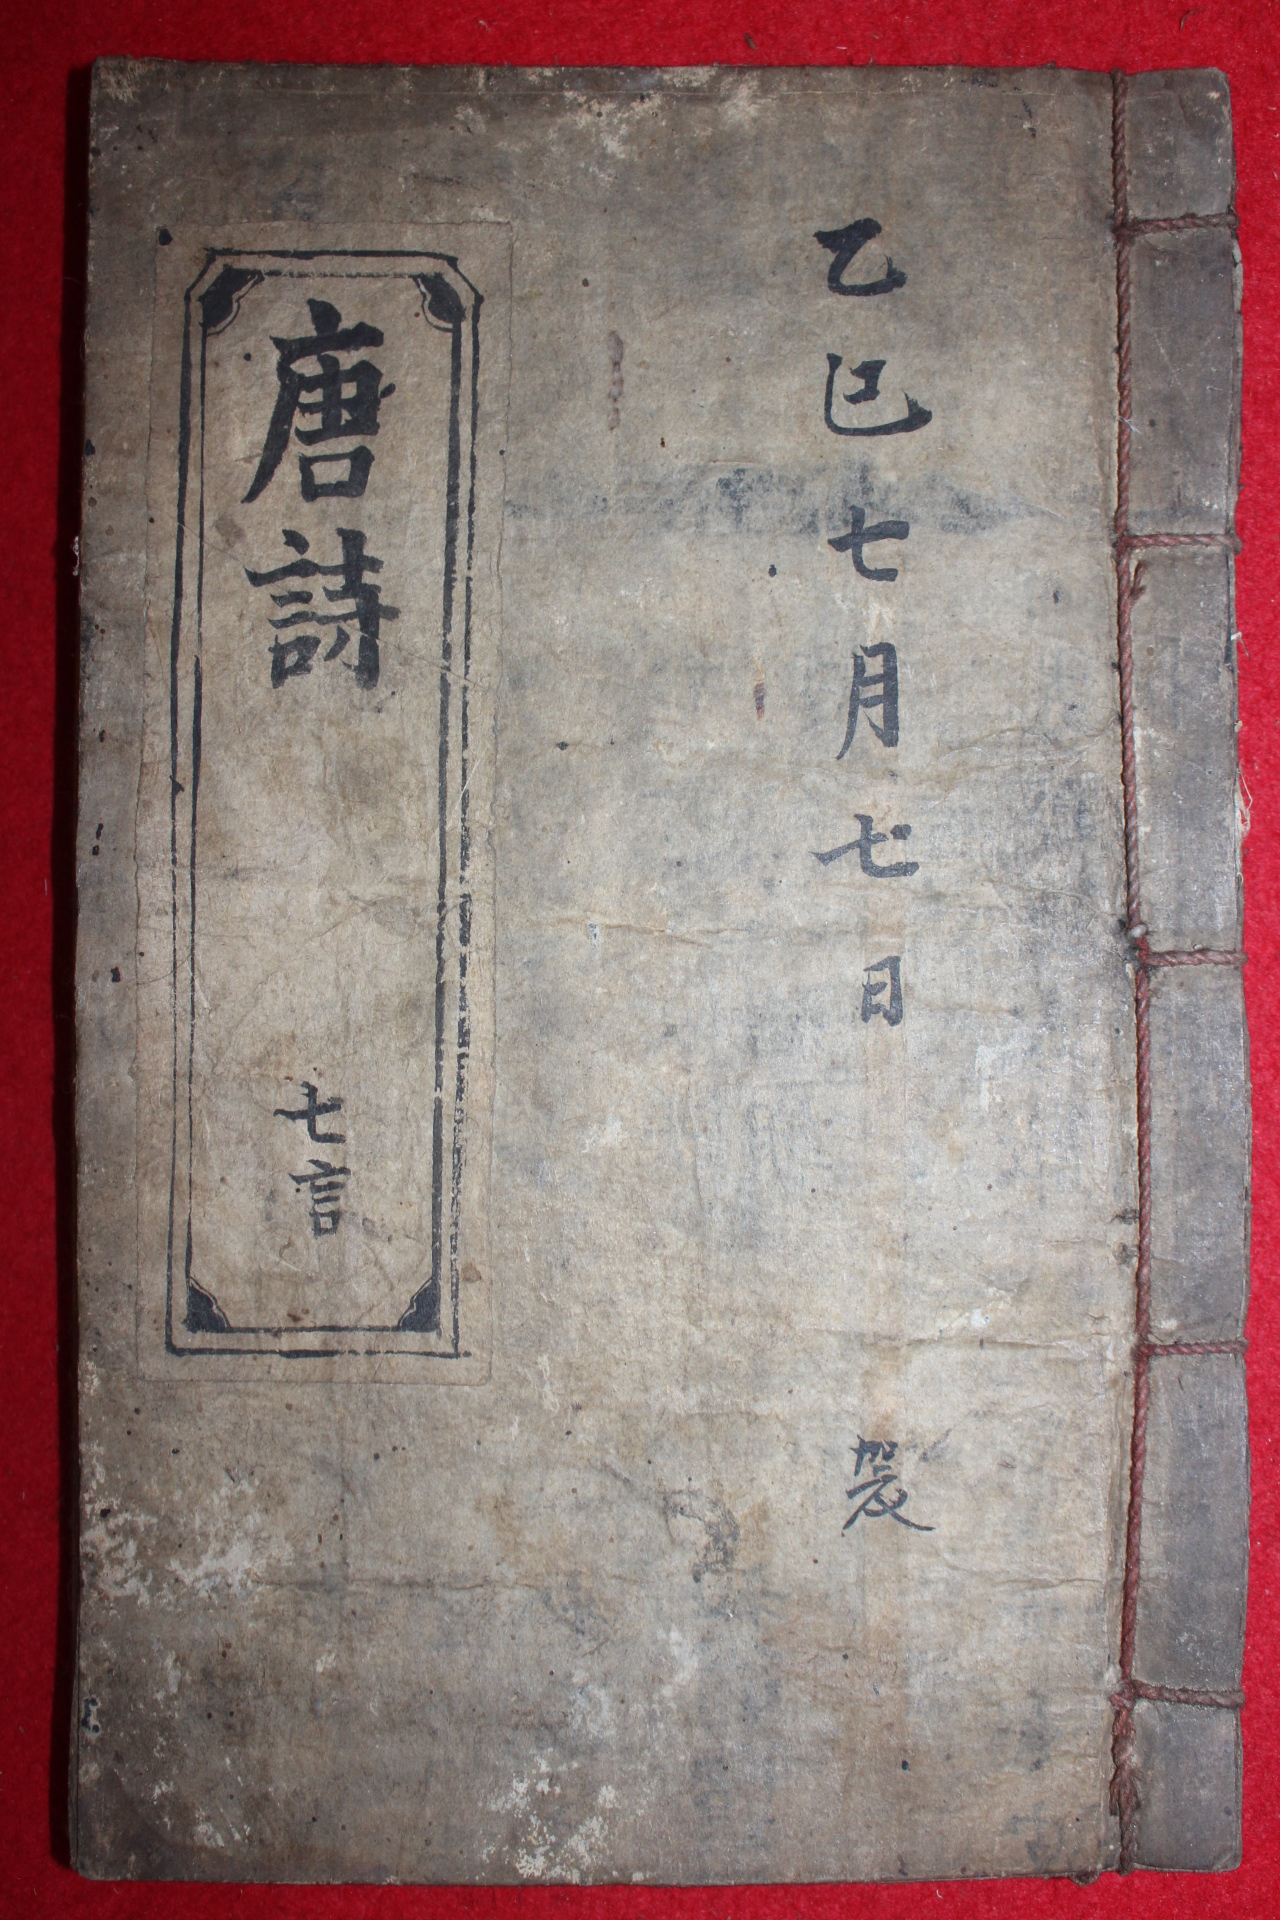 乙巳七月七日
唐詩
七言